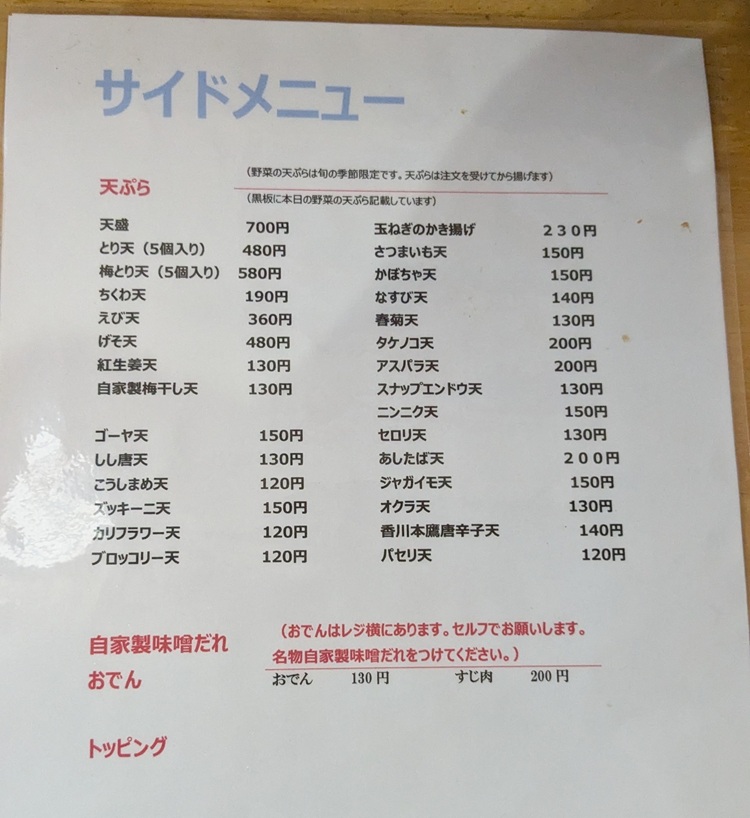 サイドメニュー
天ぷら
（野菜の天ぷらは旬の季節限定です。天ぷらは注文を受けてから揚げます）
（黒板に本日の野菜の天ぷら記載しています）
天盛 700円
とり天（5個入り） 480円
梅とり天（5個入り） 580円
ちくわ天 190円
えび天 360円
げそ天 480円
紅生姜天 130円
自家製梅干し天 130円
ゴーヤ天 150円
しし唐天 130円
こうしまめ天 120円
ズッキーニ天 150円
カリフラワー天 120円
ブロッコリー天 120円
玉ねぎのかき揚げ ２３０円
さつまいも天 150円
かぼちゃ天 150円
なすび天 140円
春菊天 130円
タケノコ天 200円
アスパラ天 200円
スナップエンドウ天 130円
ニンニク天 150円
セロリ天 130円
あしたば天 ２００円
ジャガイモ天 150円
オクラ天 130円
香川本鷹唐辛子天 140円
パセリ天 120円
自家製味噌だれ
おでん
（おでんはレジ横にあります。セルフでお願いします。
名物自家製味噌だれをつけてください。）
おでん 130円 すじ肉 200円
トッピング